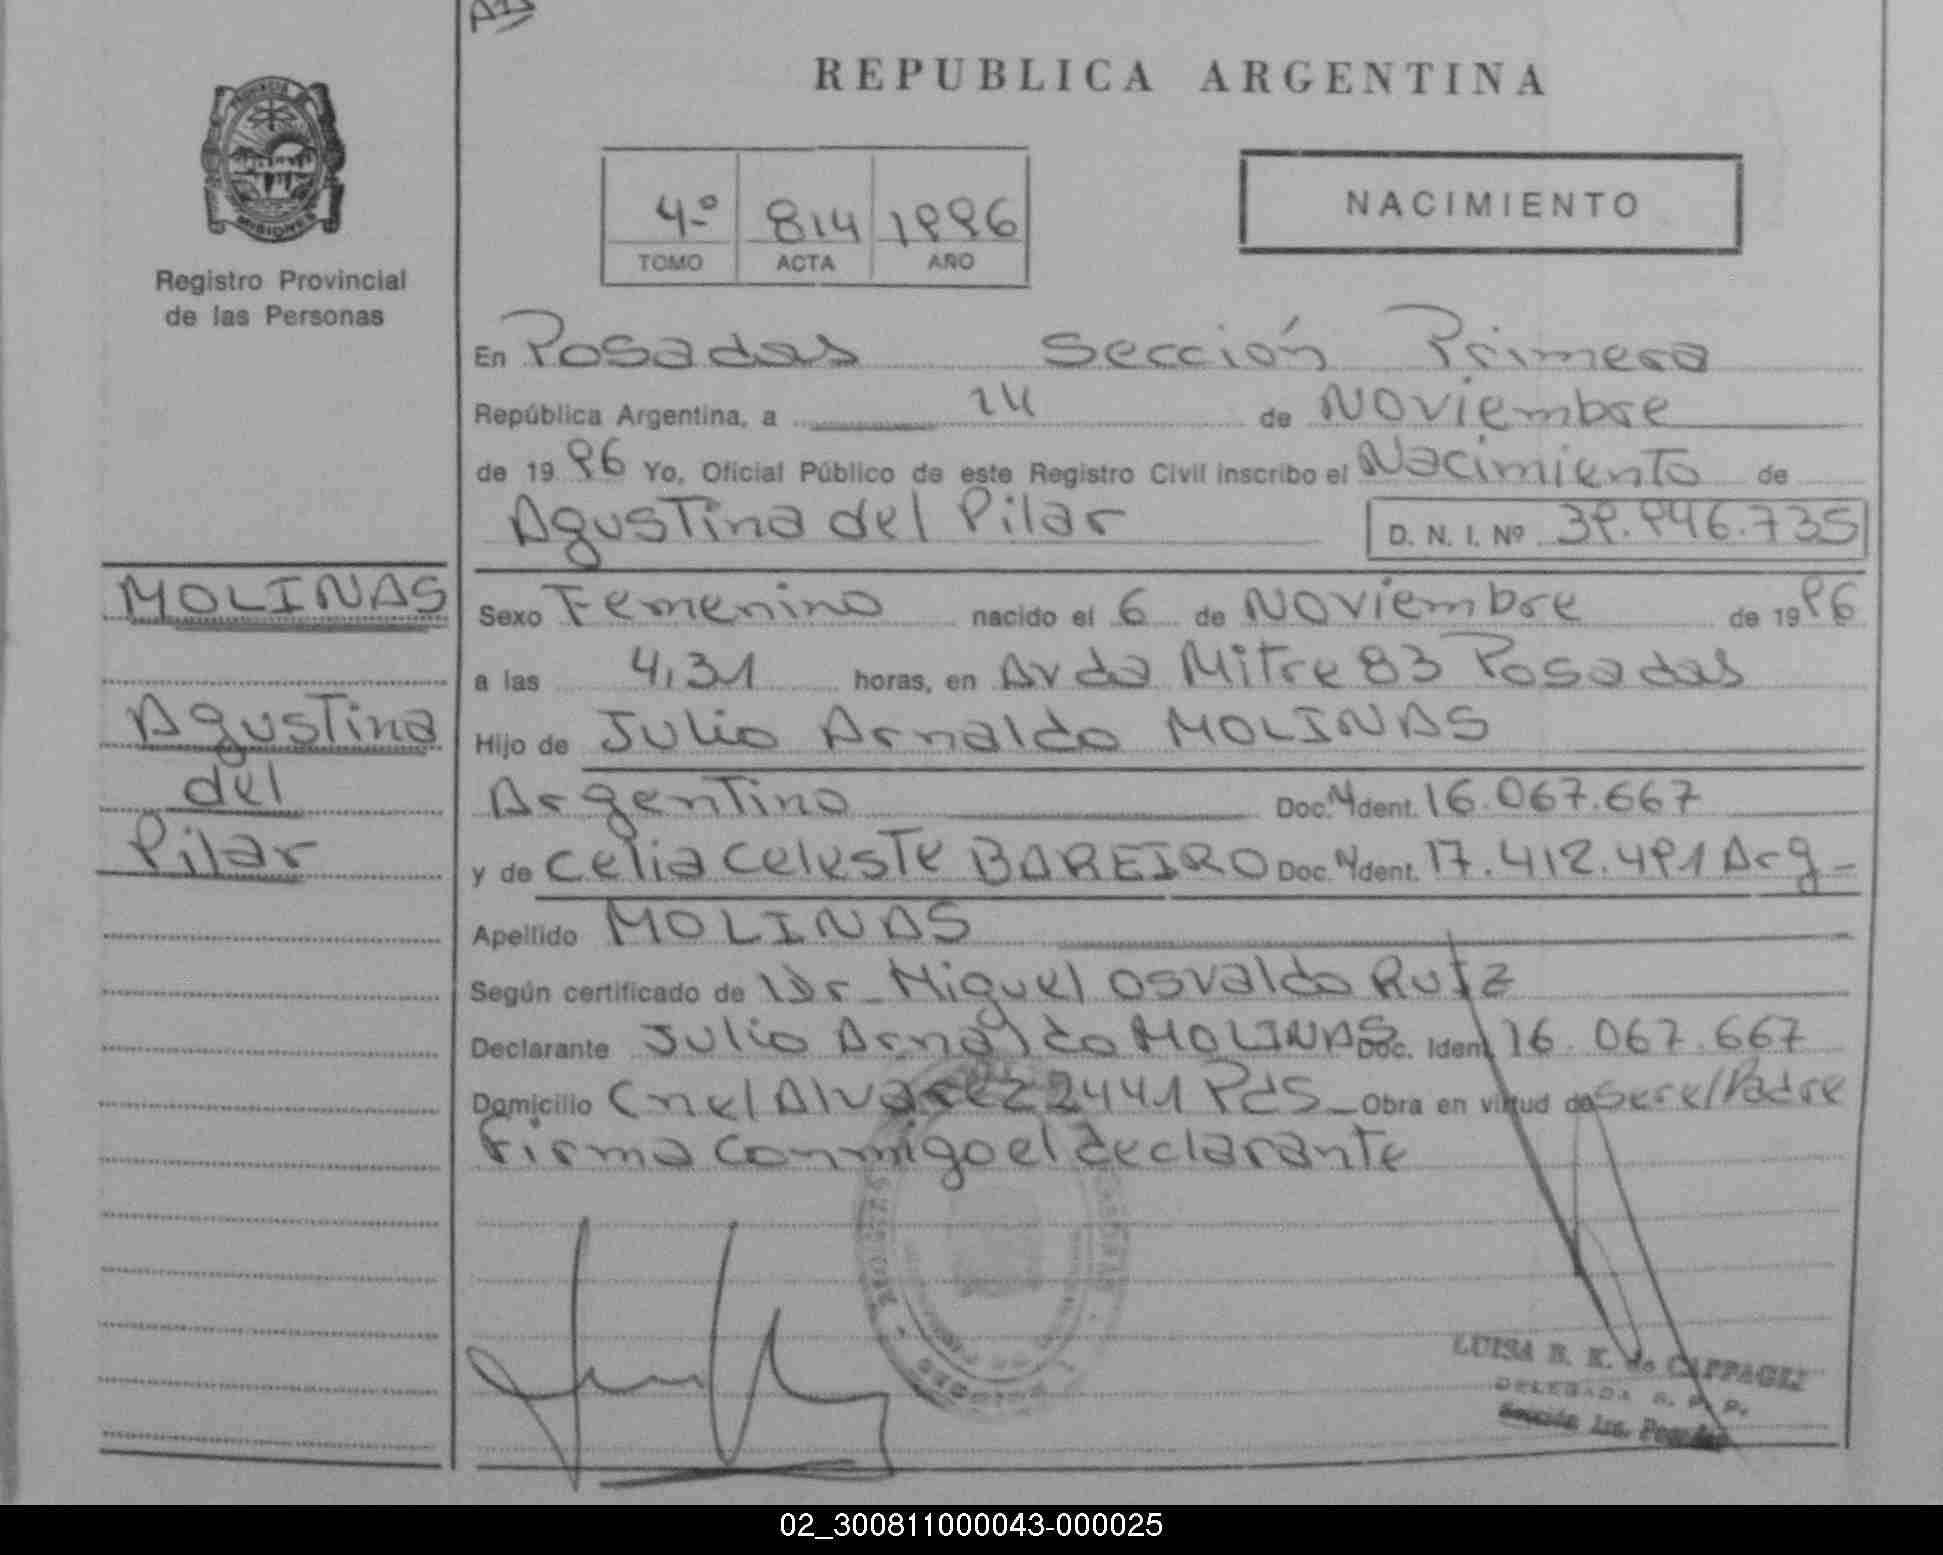 REPUBLICA ARGENTINA
PROVINCIA DE MISIONES
Registro Provincial
de las Personas
4º 814 1996
TOMO ACTA AÑO
NACIMIENTO
En Posadas Sección Primera
República Argentina, a 14 de Noviembre
de 1996 Yo, Oficial Público de este Registro Civil inscribo el Nacimiento de
Agustina del Pilar D. N. I. Nº 39.946.735
MOLINAS
Agustina
del
Pilar
Sexo Femenino nacido el 6 de Noviembre de 1996
a las 4,31 horas, en Avda Mitre 83 Posadas
Hijo de Julio Arnaldo MOLINAS
Argentino Doc. Ident. 16.067.667
y de Celia Celeste BAREIRO Doc. Ident. 17.412.491 Arg_
Apellido MOLINAS
Según certificado de Dr_ Miguel Osvaldo Ruiz
Declarante Julio Arnaldo MOLINAS Doc. Ident. 16.067.667
Domicilio Cnel Alvarez 2441 Pds_ Obra en virtud de ser el Padre
Firma conmigo el declarante
LUISA B. K. de CAPPAGLI
DELEGADA R. P. P.
Sección 1ra. Posadas
02_300811000043-000025